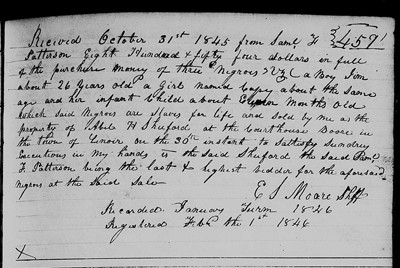 Received October 31st 1845 from Saml F 3/4591
Patterson Eight Hundred & fifty four dollars in full
of the purchase money of three Negros Viz (a Boy Jim
about 26 Years old a Girl Named about the same
age and her infant Child about Months old
which said Negros are Slaves for life and sold by me as the
property of Abile H Shuford at the Courthouse Doore in
the town of Lenoir on the 30th instant to Sattisfy Sundrey
Executions in my hands vs the Said Shuford the Said Saml
F. Patterson being the last & highest bidder for the aforesaid
negros at the Said Sale
E S Moore Shff
Recorded January Turm 1846
Registered Feb the 1st 1846
X